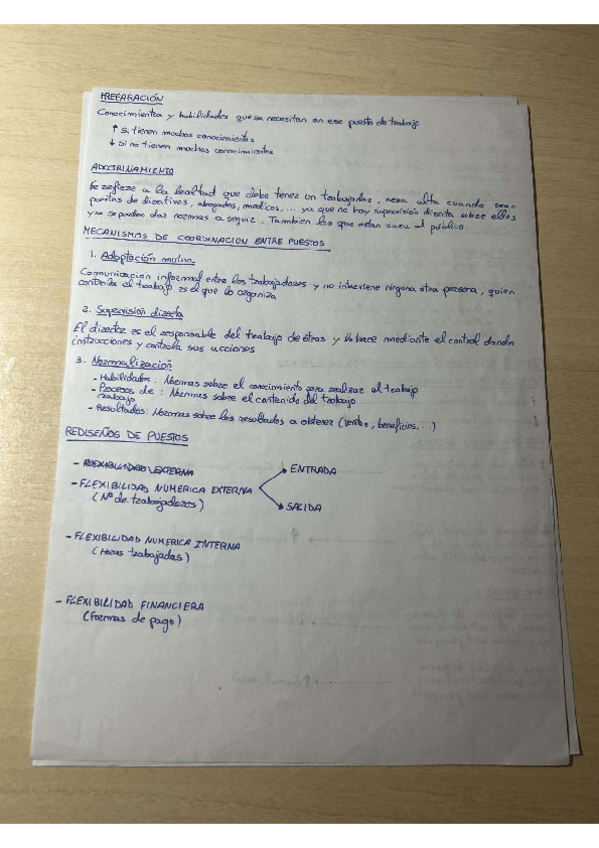 PREPARACIÓN
Conocimientos y habilidades que se necesitan en ese puesto de trabajo
↑ Si tienen muchos conocimientos
↓ Si no tienen muchos conocimientos
ADOCTRINAMIENTO
Se refiere a la lealtad que debe tener un trabajador, sera alta cuando sean
puestos de directivos, abogados, medicos, ... ya que no hay supervisión directa sobre ellos
y no se pueden dar normas a seguir. Tambien los que estan cara al público.
MECANISMOS DE COORDINACION ENTRE PUESTOS
1. Adaptación mutua
Comunicacion informal entre los trabajadores y no interviene ninguna otra persona, quien
controla el trabajo es el que lo organiza
2. Supervisión directa
El director es el responsable del trabajo de otros y lo hace mediante el control dando
instrucciones y controla sus acciones
3. Normalización
- Habilidades: Normas sobre el conocimiento para realizar el trabajo
- Procesos de trabajo: Normas sobre el contenido del trabajo
- Resultados: Normas sobre los resultados a obtener (ventas, beneficios, ...)
REDISEÑOS DE PUESTOS
- FLEXIBILIDAD EXTERNA
- FLEXIBILIDAD NUMERICA EXTERNA
(Nº de trabajadores)
ENTRADA
SALIDA
- FLEXIBILIDAD NUMERICA INTERNA
(Horas trabajadas)
- FLEXIBILIDAD FINANCIERA
(Formas de pago)